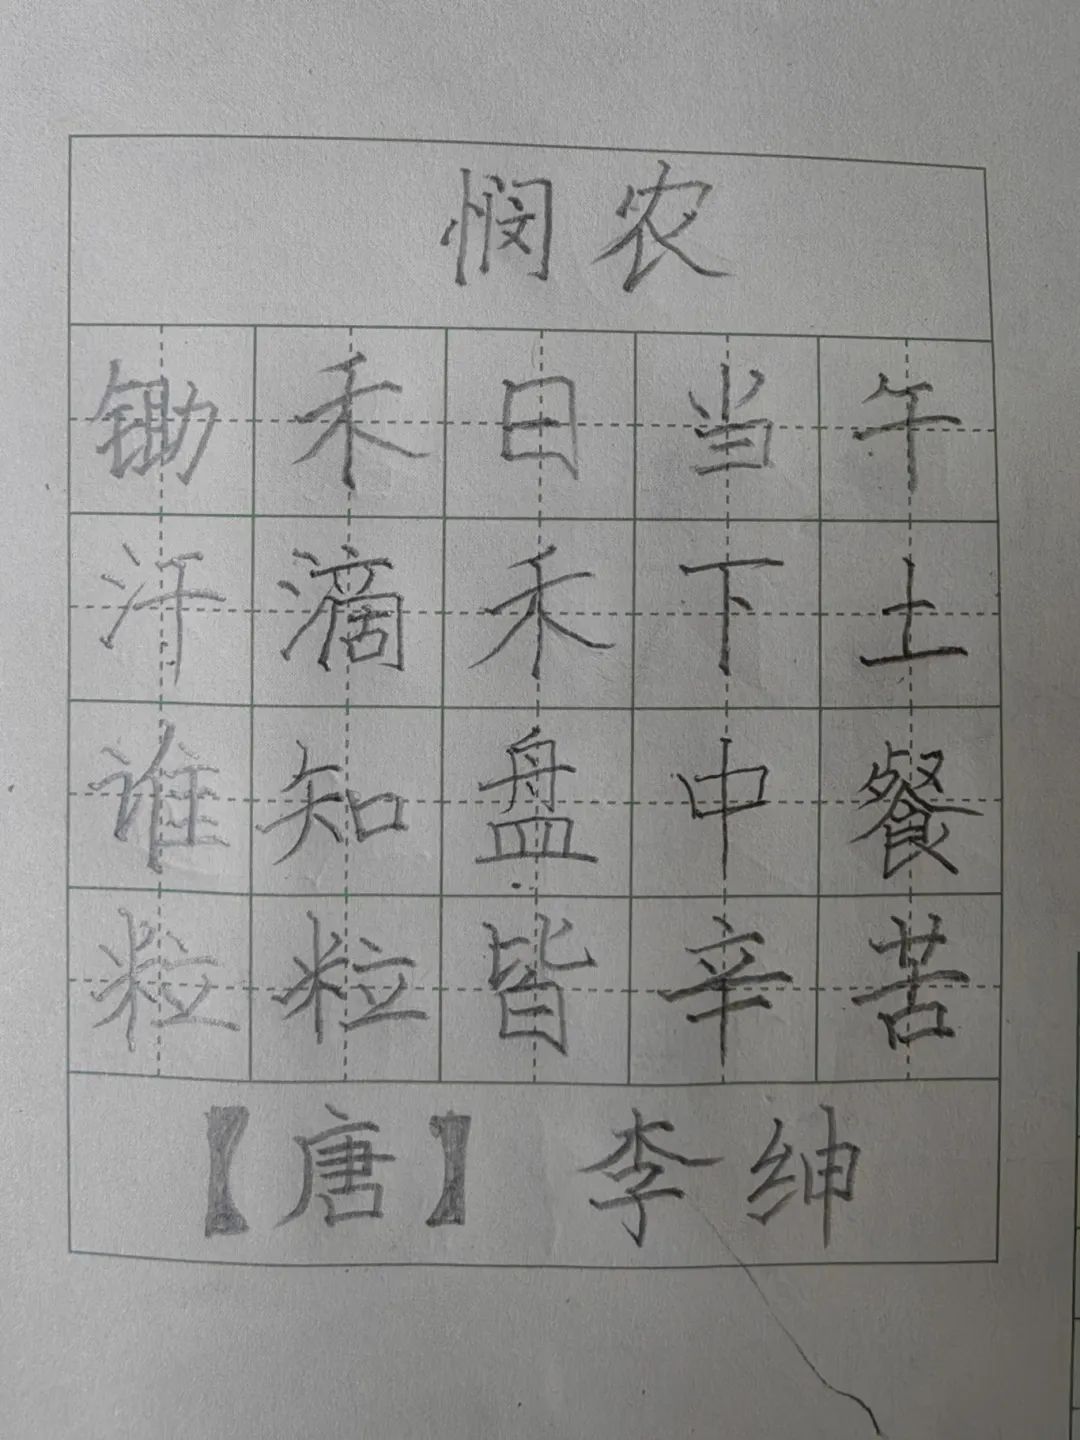 悯农
锄禾日当午
汗滴禾下土
谁知盘中餐
粒粒皆辛苦
【唐】李绅